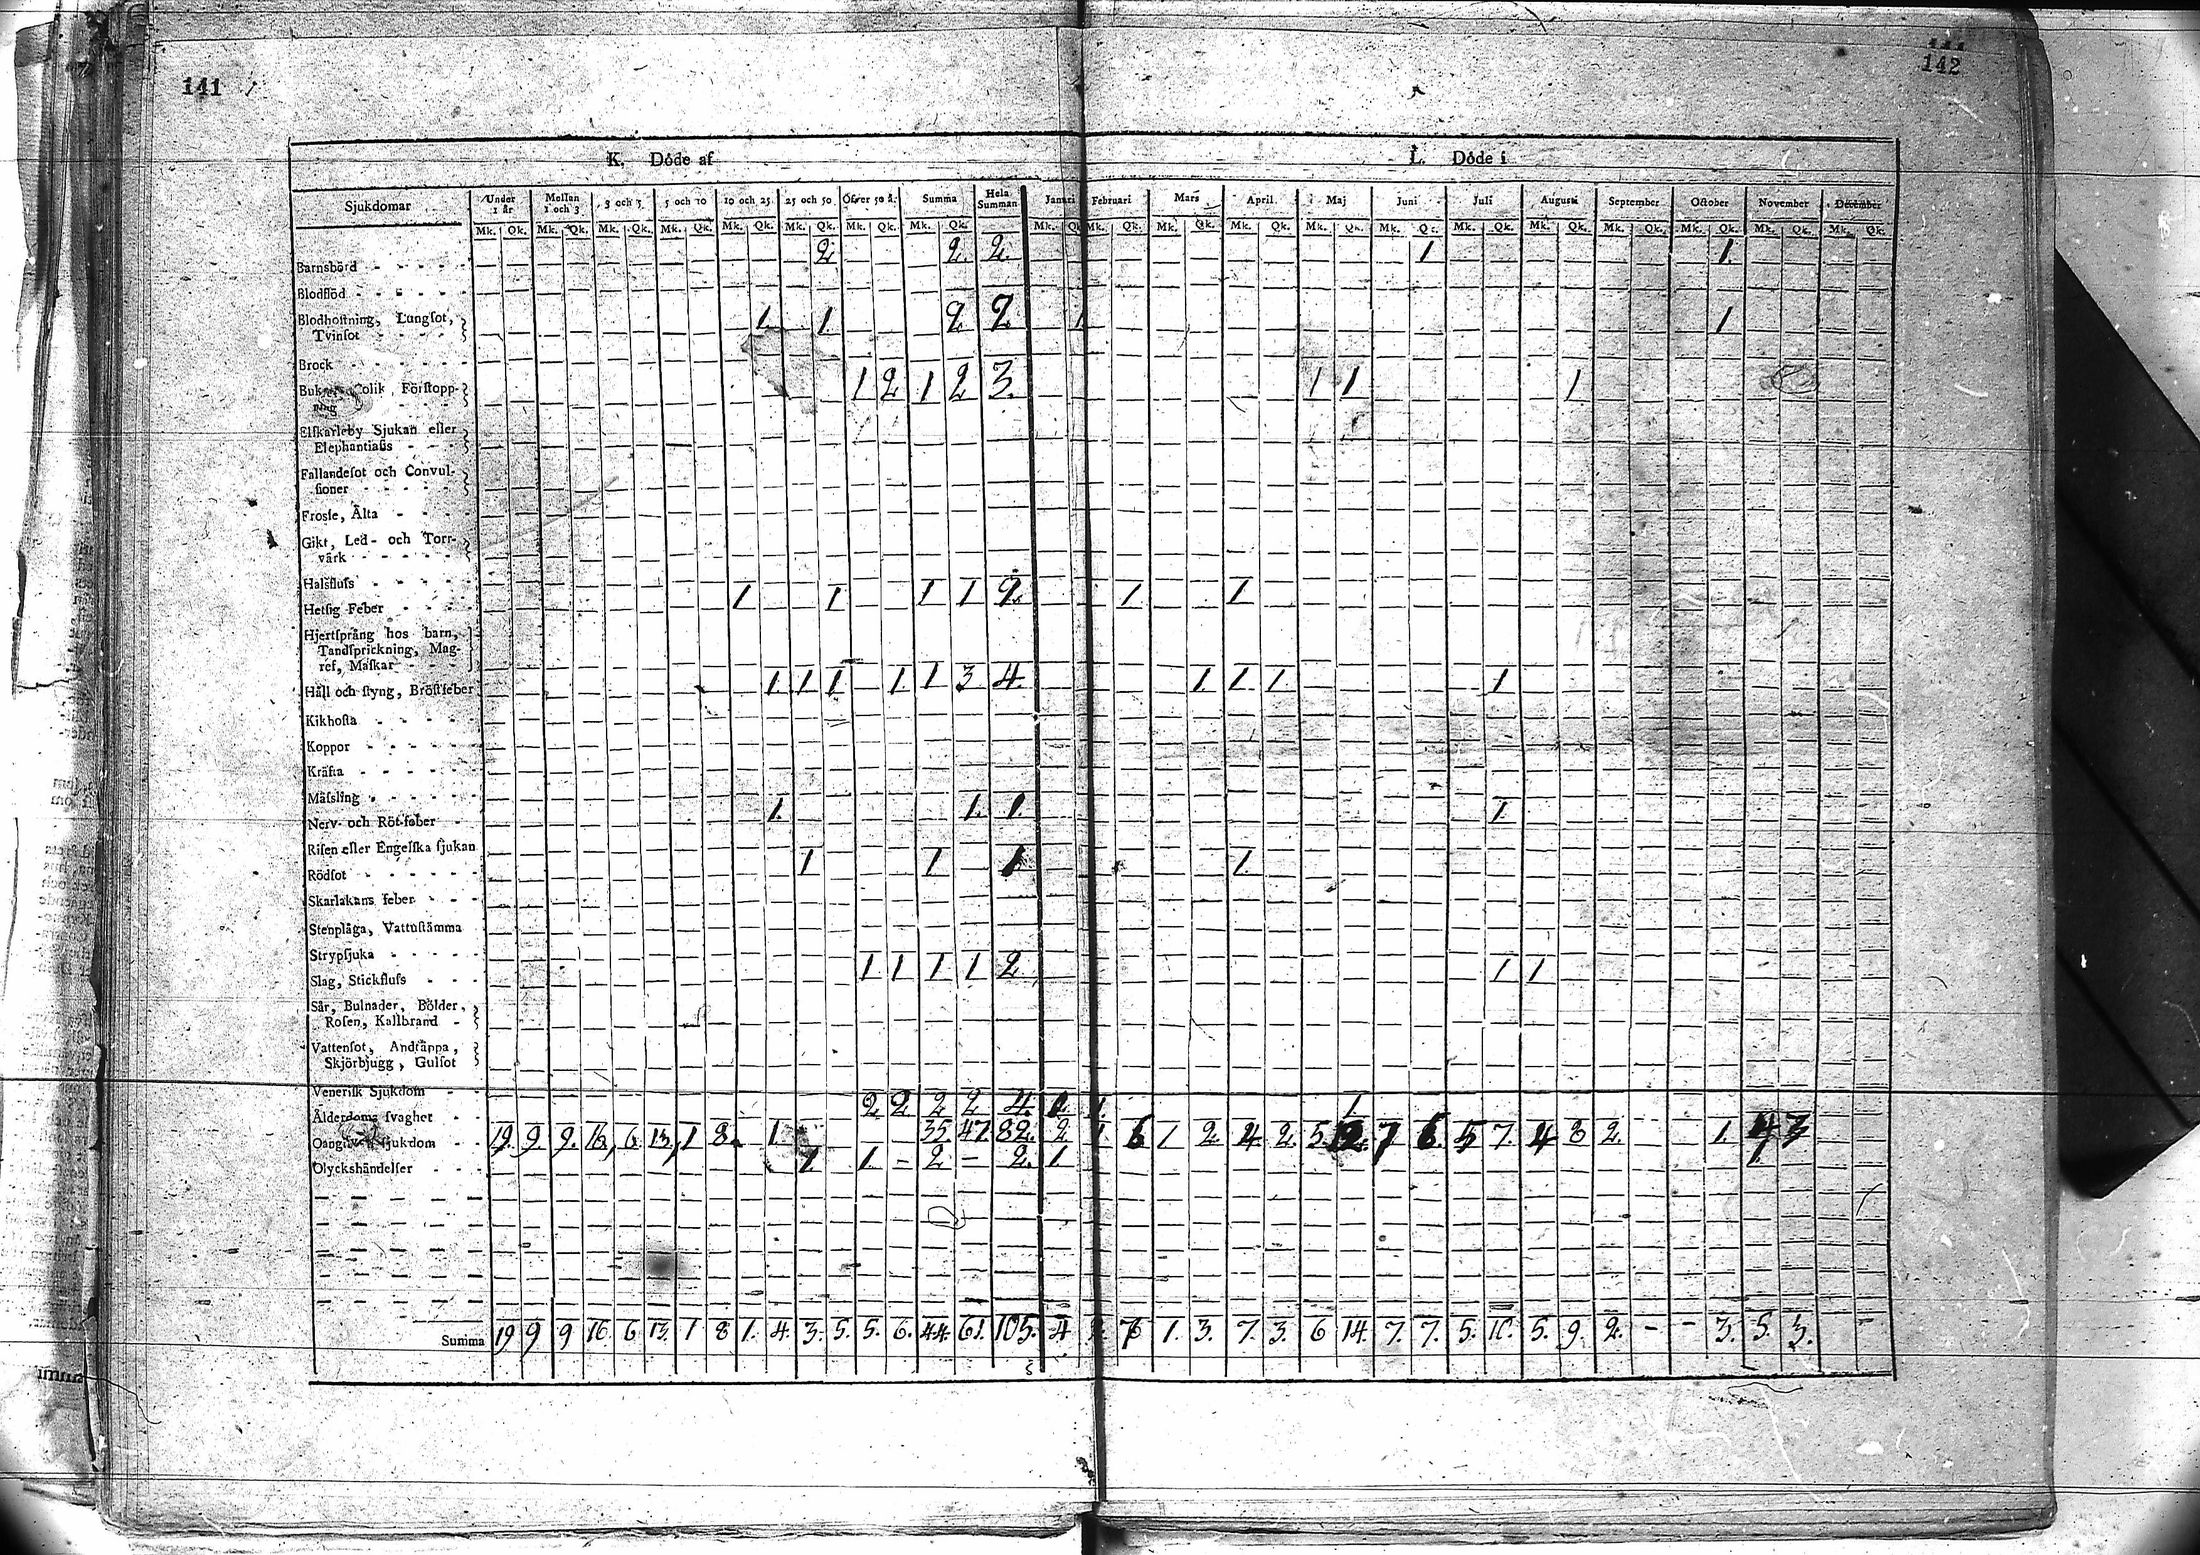 141
142
K. Döde af L. Döde i
Sjukdomar Under 1 år Mellan 1 och 3 3 och 5 5 och 10 10 och 25 25 och 50 Öfver 50 å. Summa Hela Summan Januari Februari Mars April Maj Juni Juli Augusti September October November December
Mk. Qk. Mk. Qk. Mk. Qk. Mk. Qk. Mk. Qk. Mk. Qk. Mk. Qk. Mk. Qk. Mk. Qk. Mk. Qk. Mk. Qk. Mk. Qk. Mk. Qk. Mk. Qk. Mk. Qk. Mk. Qk. Mk. Qk. Mk. Qk. Mk. Qk. Mk. Qk.
Barnsbörd 2 2. 2. 1 1.
Blodflöd
Blodhostning, Lungsot,
Tvinsot 1. 1. 2. 2 1 1
Brock
Colik, Förstopp-
ning 1 2 1 2 3. 1 1 1
Elfkarleby Sjukan eller
Elephantiasis
Fallandesot och Convul-
sioner
Frosse, Älta
Gikt, Led- och Torr-
värk
Halsfluss
Hetsig Feber 1 1 1 1 2. 1 1
Hjertsprång hos barn,
Tandsprickning, Mag-
ref, Maskar
Håll och styng, Bröstfeber 1 1 1 1. 1 3 4. 1. 1. 1 1
Kikhosta
Koppor
Kräfta
Mässling
Nerv- och Röt-feber 1. 1. 1. 1.
Risen eller Engelska sjukan
Rödsot 1 1 1 1.
Skarlakans feber
Stenplåga, Vattustämma
Strypsjuka
Slag, Stickfluss 1 1 1 1 2 1 1
Sår, Bulnader, Bölder,
Rosen, Kallbrand
Vattensot, Andtäppa,
Skjörbjugg, Gulsot
Venerisk Sjukdom
Ålderdoms svaghet 2 2 2 2 4. 1. 1. 1
Oangifven sjukdom 19. 9. 9. 16, 6. 13, 1 8. 1. 35. 47. 82. 2. 1. 6 1 2 4 2. 5. 12. 7 6. 5 7. 4 8 2. 1. 4 3
Olyckshändelser 1. 1. - 2 - 2. 1. 1.
Summa 19. 9 9 16. 6 13. 1 8 1. 4. 3. 5. 5. 6. 44. 61. 105. 4 7 1. 3. 7. 3. 6 14. 7. 7. 5. 10. 5. 9. 2. - - 3. 5. 3. -